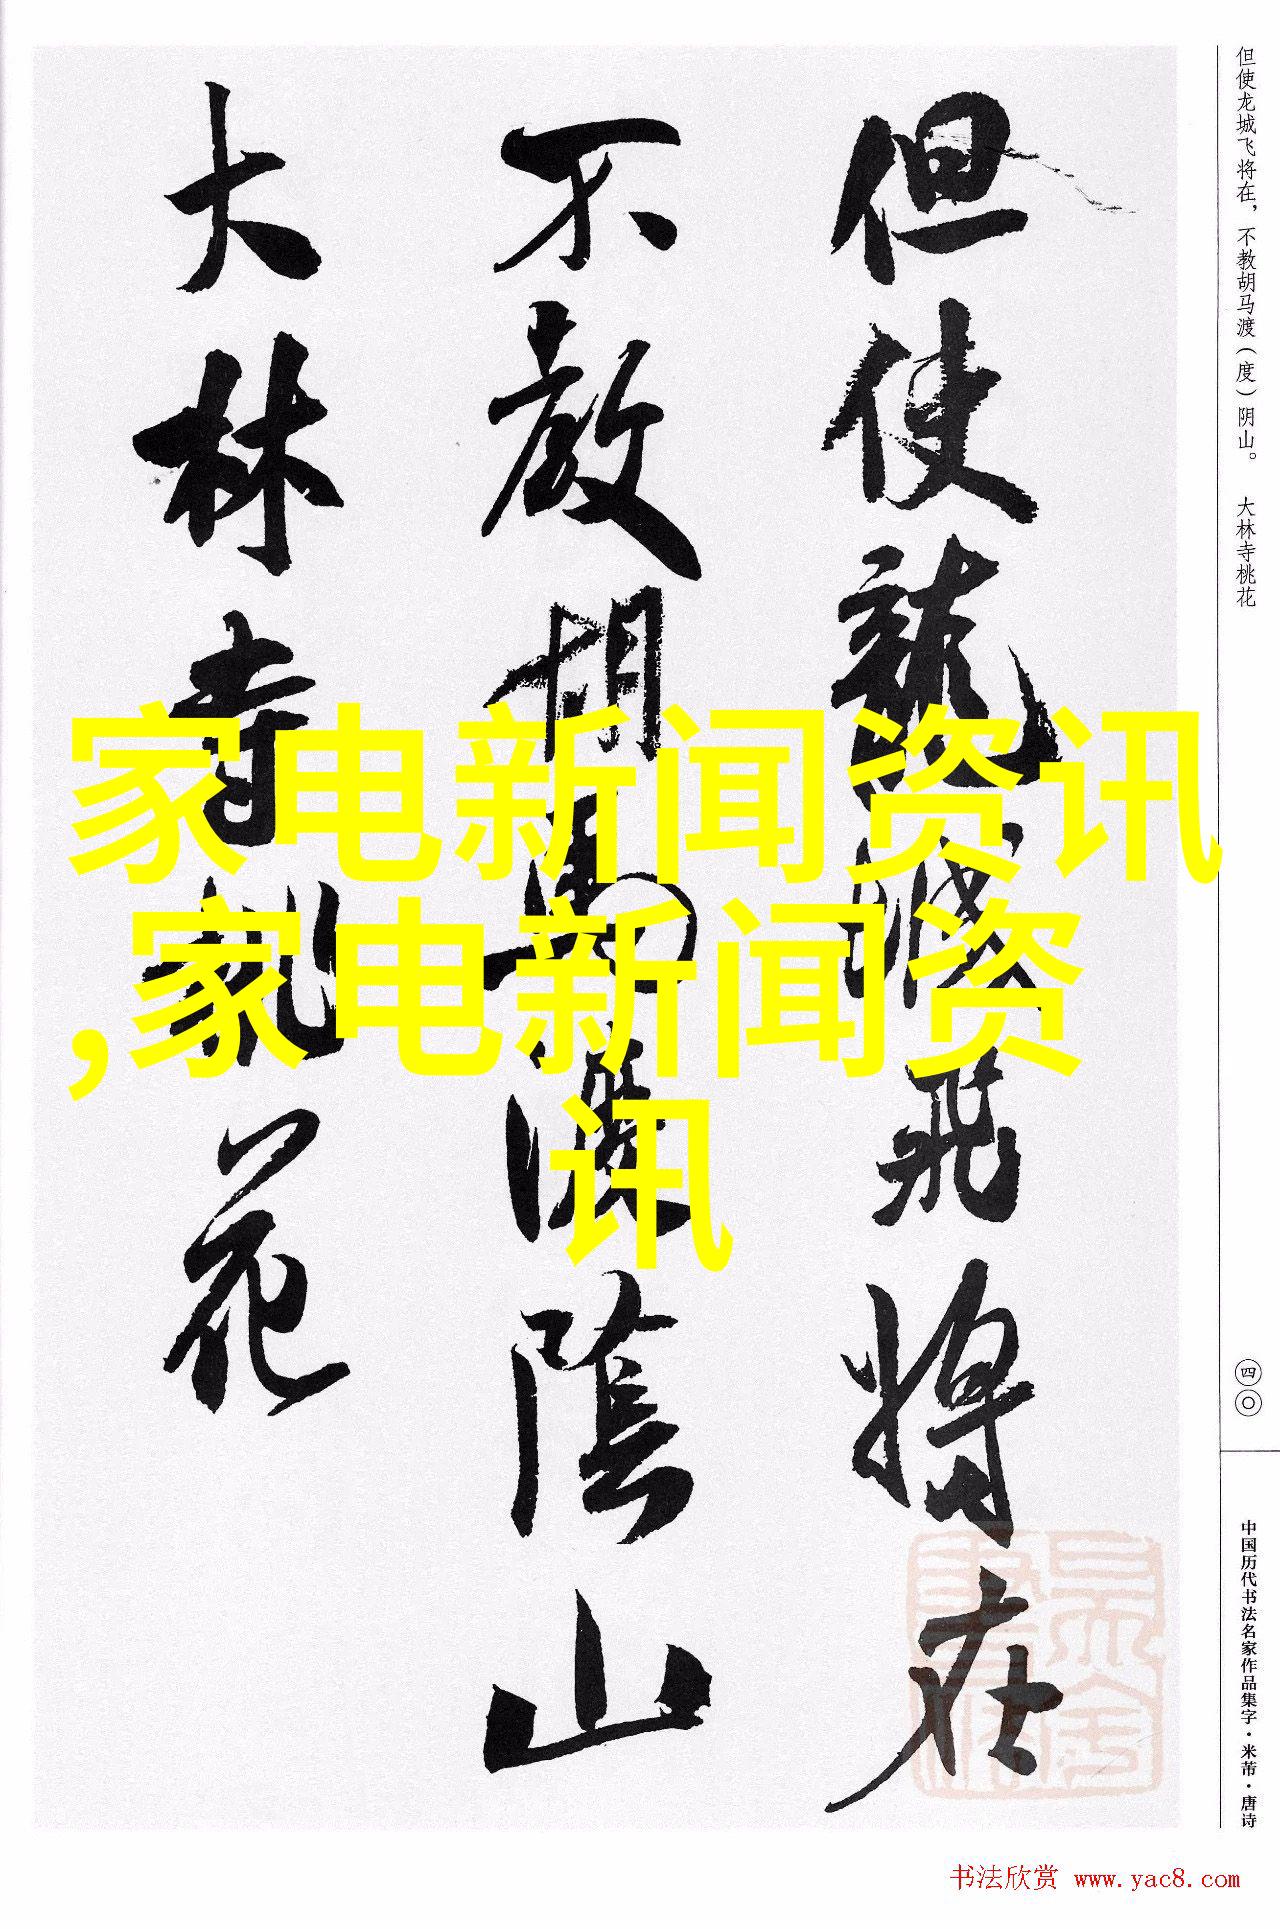 但使龍城飛將在
不教胡馬渡陰山
大林寺桃花
但使龙城飞将在，不教胡马渡（度）阴山。 大林寺桃花
四〇
中国历代书法名家作品集字·米芾·唐诗
家电新闻资讯
,家电新闻资
讯
书法欣赏 www.yac8.com